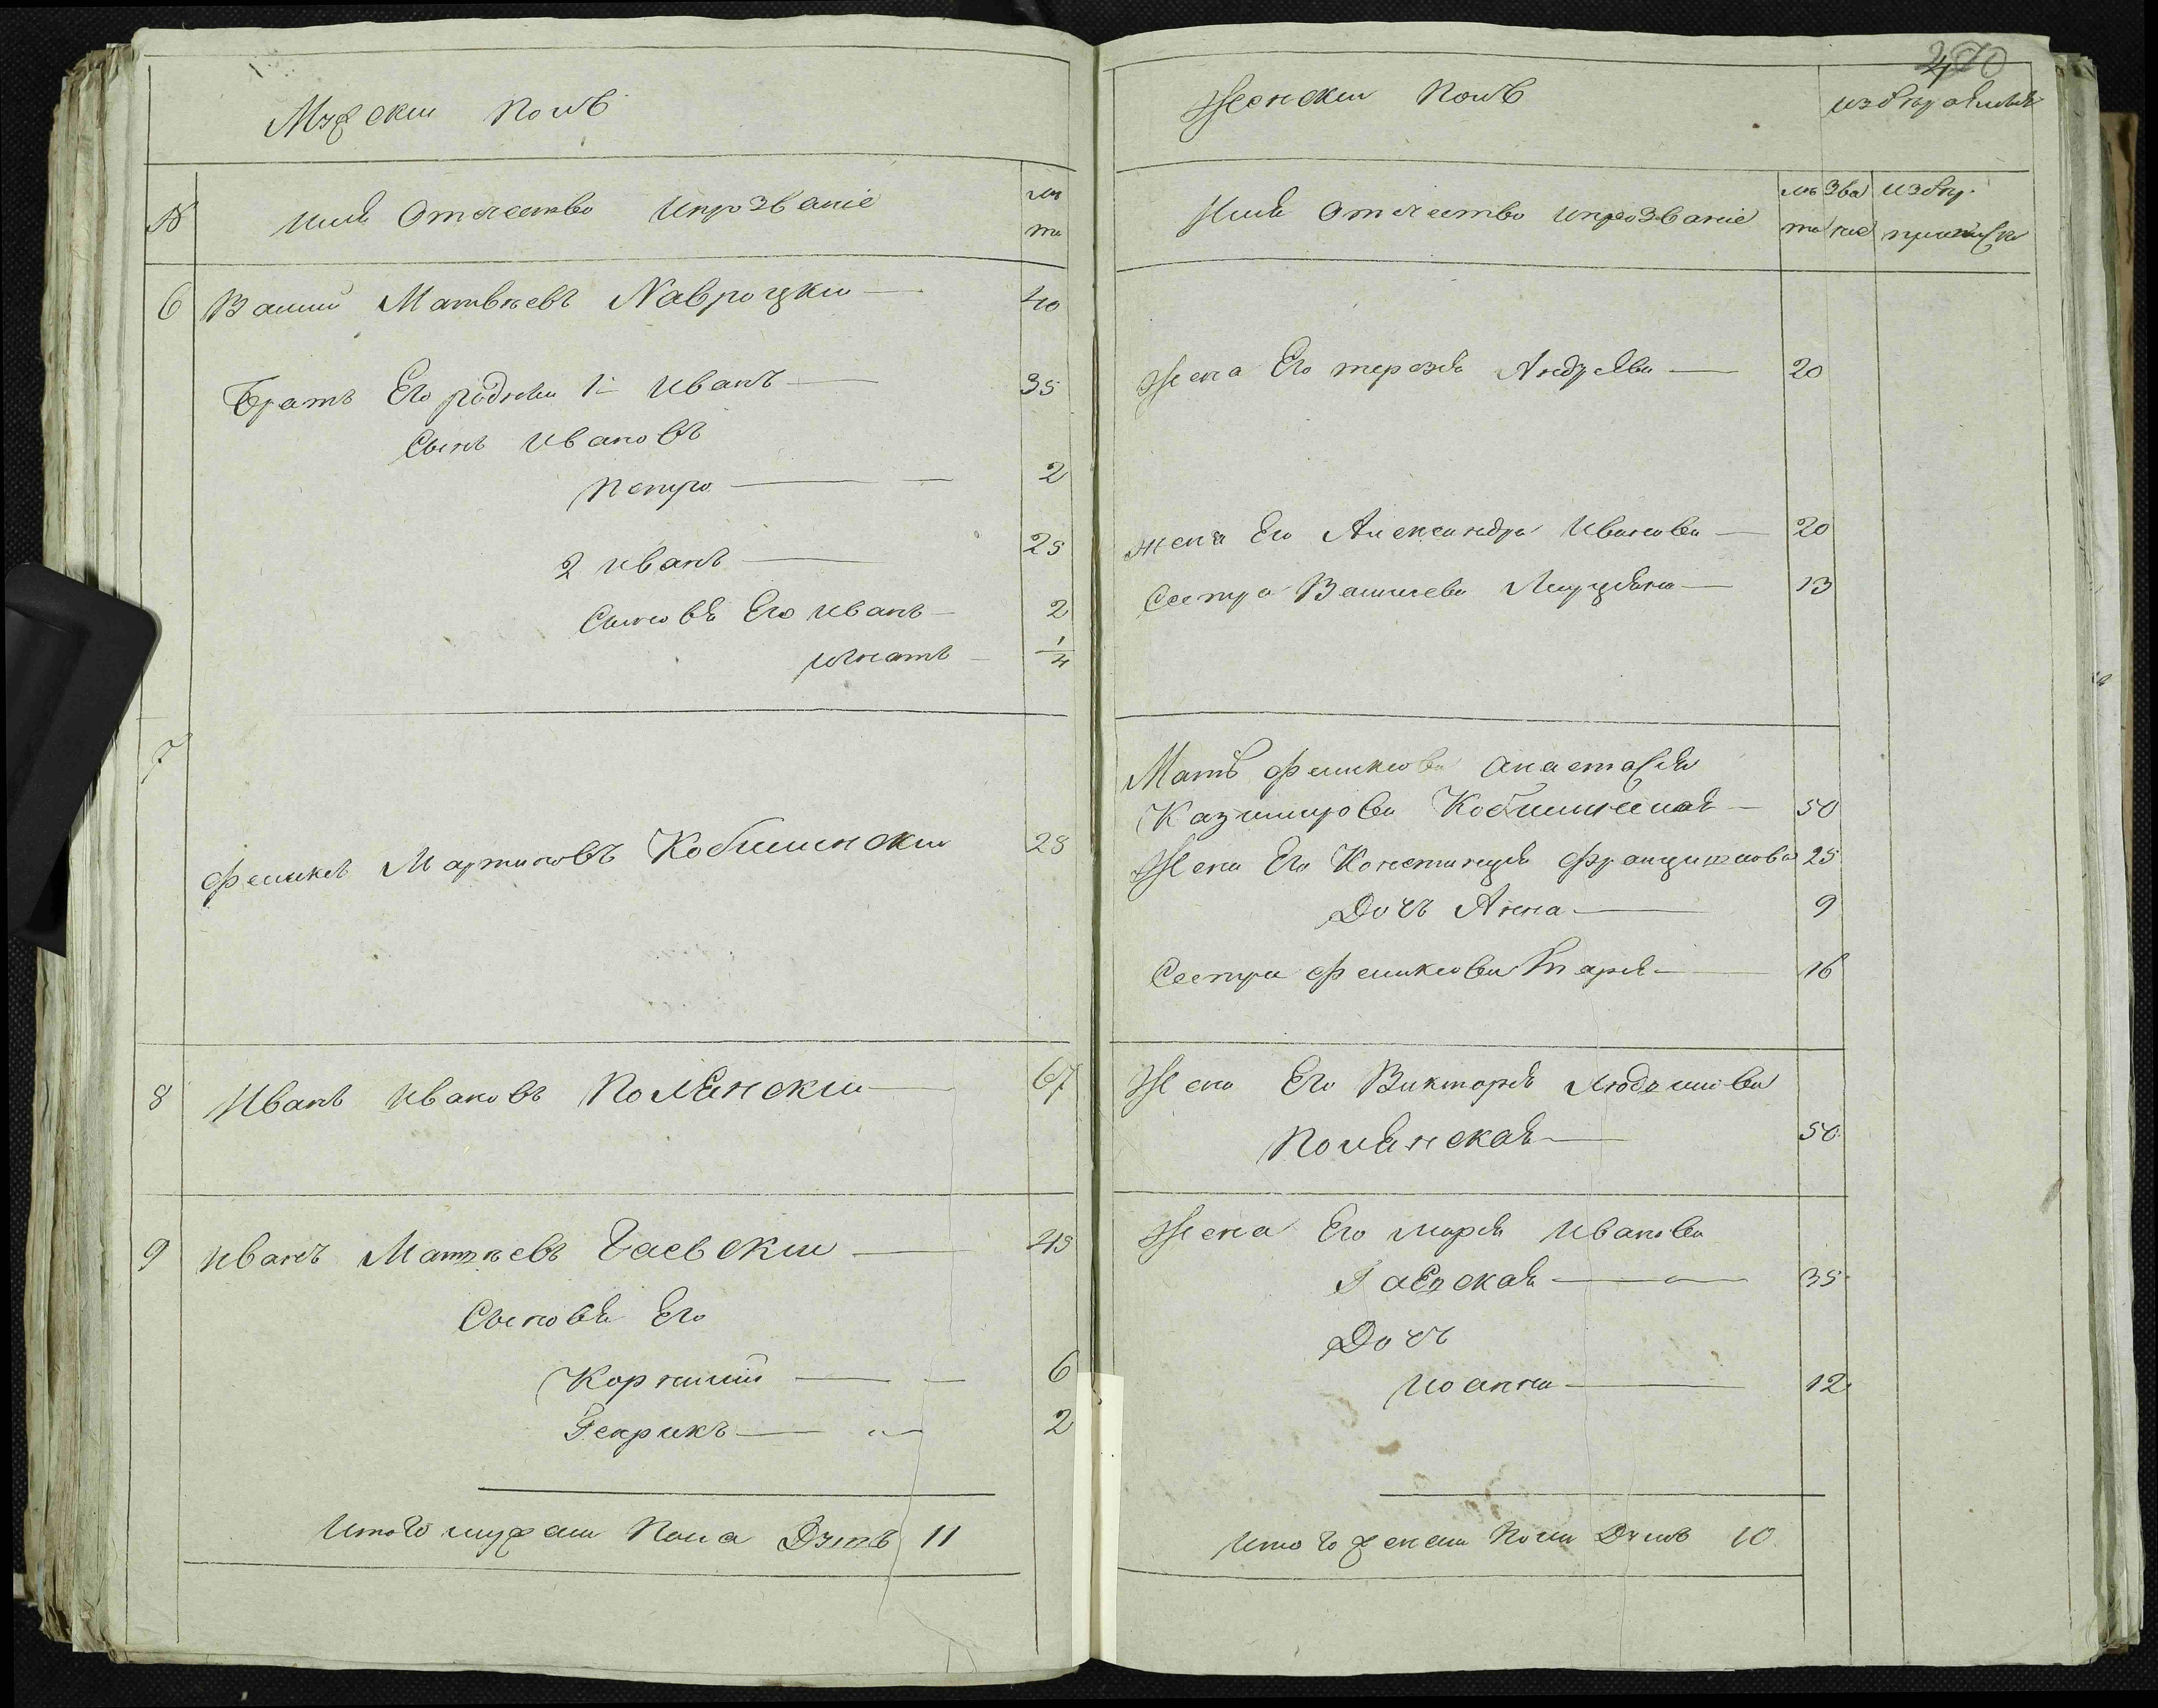 Мужскии полъ
№
имя отечество ипрозваніе
лѣ
та
6 Василий Матвѣевъ Навроцки 40
Братъ Его родныи 1й иванъ 35
Сынъ ивановъ
петро 2
2 иванъ 25
Сыновья Его иванъ 2
игнатъ 1/4
7
Феликсъ Мартиновъ Кобилински 28
8 Иванъ ивановъ Полянскии 67
9 иванъ Матвѣевъ Гаевскии 45
Сыновья Его
Корнилий 6
Генрикъ 2
Итого мужеска пола Душъ 11
470
Женскии полъ
Имя отечество ипрозваніе
лѣ
та
зва
ние
жена Его терезя Андреява 20
жена Его Александра Иванова 20
Сестра Василева Люцияна 13
Мать феликсова анастасия
Казимирова Кобилинская 50
Жена Его Констанция францишкова 25
Дочъ Анна 9
Сестра феликсова Марья 16
Жена Его Викторя
Полянская 50
Жена Его марья иванова
Гаевская 35
Дочъ
иоанна 12
итого женска пола Душъ 10